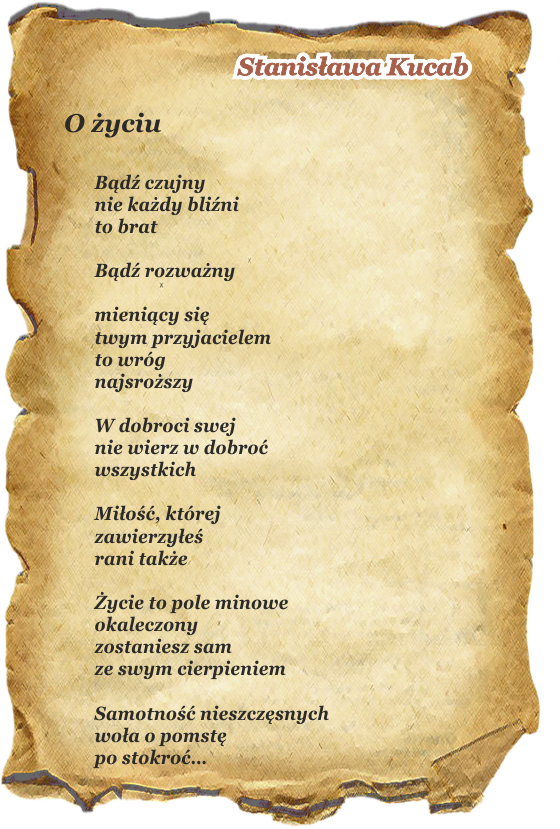 Stanisława Kucab
O życiu
Bądź czujny
nie każdy bliźni
to brat
Bądź rozważny
mieniący się
twym przyjacielem
to wróg
najsroższy
W dobroci swej
nie wierz w dobroć
wszystkich
Miłość, której
zawierzyłeś
rani także
Życie to pole minowe
okaleczony
zostaniesz sam
ze swym cierpieniem
Samotność nieszczęsnych
woła o pomstę
po stokroć...